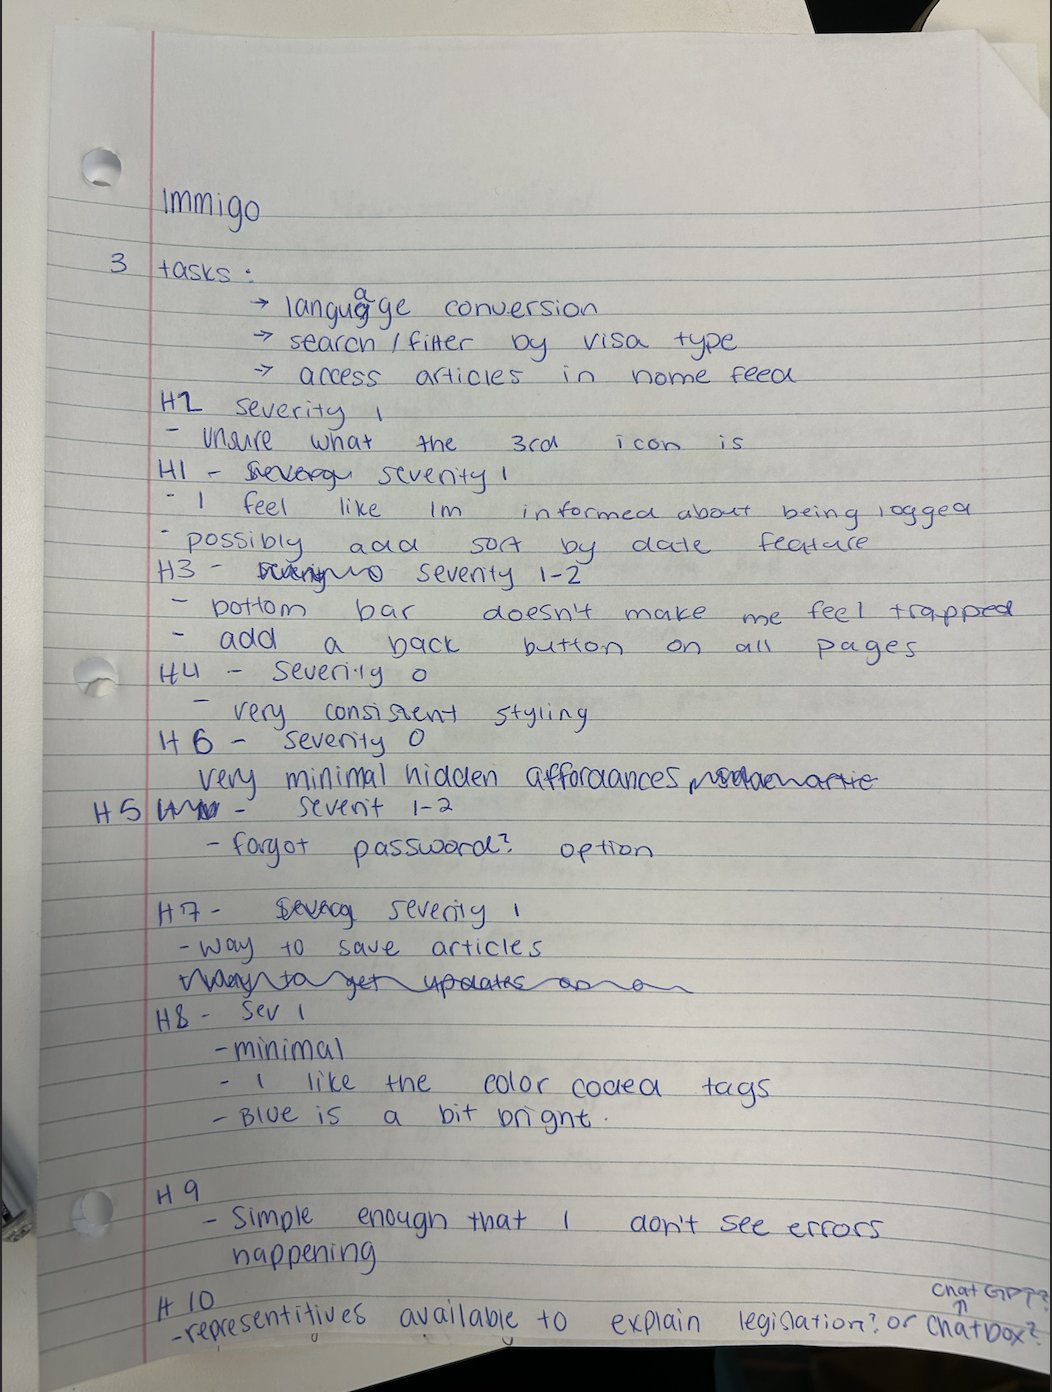 Immigo
3 tasks:
→ language conversion
→ search/filter by visa type
→ access articles in home feed
H2 severity 1
- unsure what the 3rd icon is
H1 - severity 1
- I feel like Im informed about being logged
- possibly add sort by date feature
H3 - severity 1-2
- bottom bar doesn't make me feel trapped
- add a back button on all pages
H4 - severity 0
- very consistent styling
H6 - severity 0
very minimal hidden affordances
H5 - severit 1-2
- forgot password? option
H7 - severity 1
- way to save articles
H8 - sev 1
- minimal
- I like the color coded tags
- Blue is a bit bright.
H9
- Simple enough that I don't see errors
happening
H10
Chat GPT?
↑
- representitives available to explain legislation? or Chatbox?